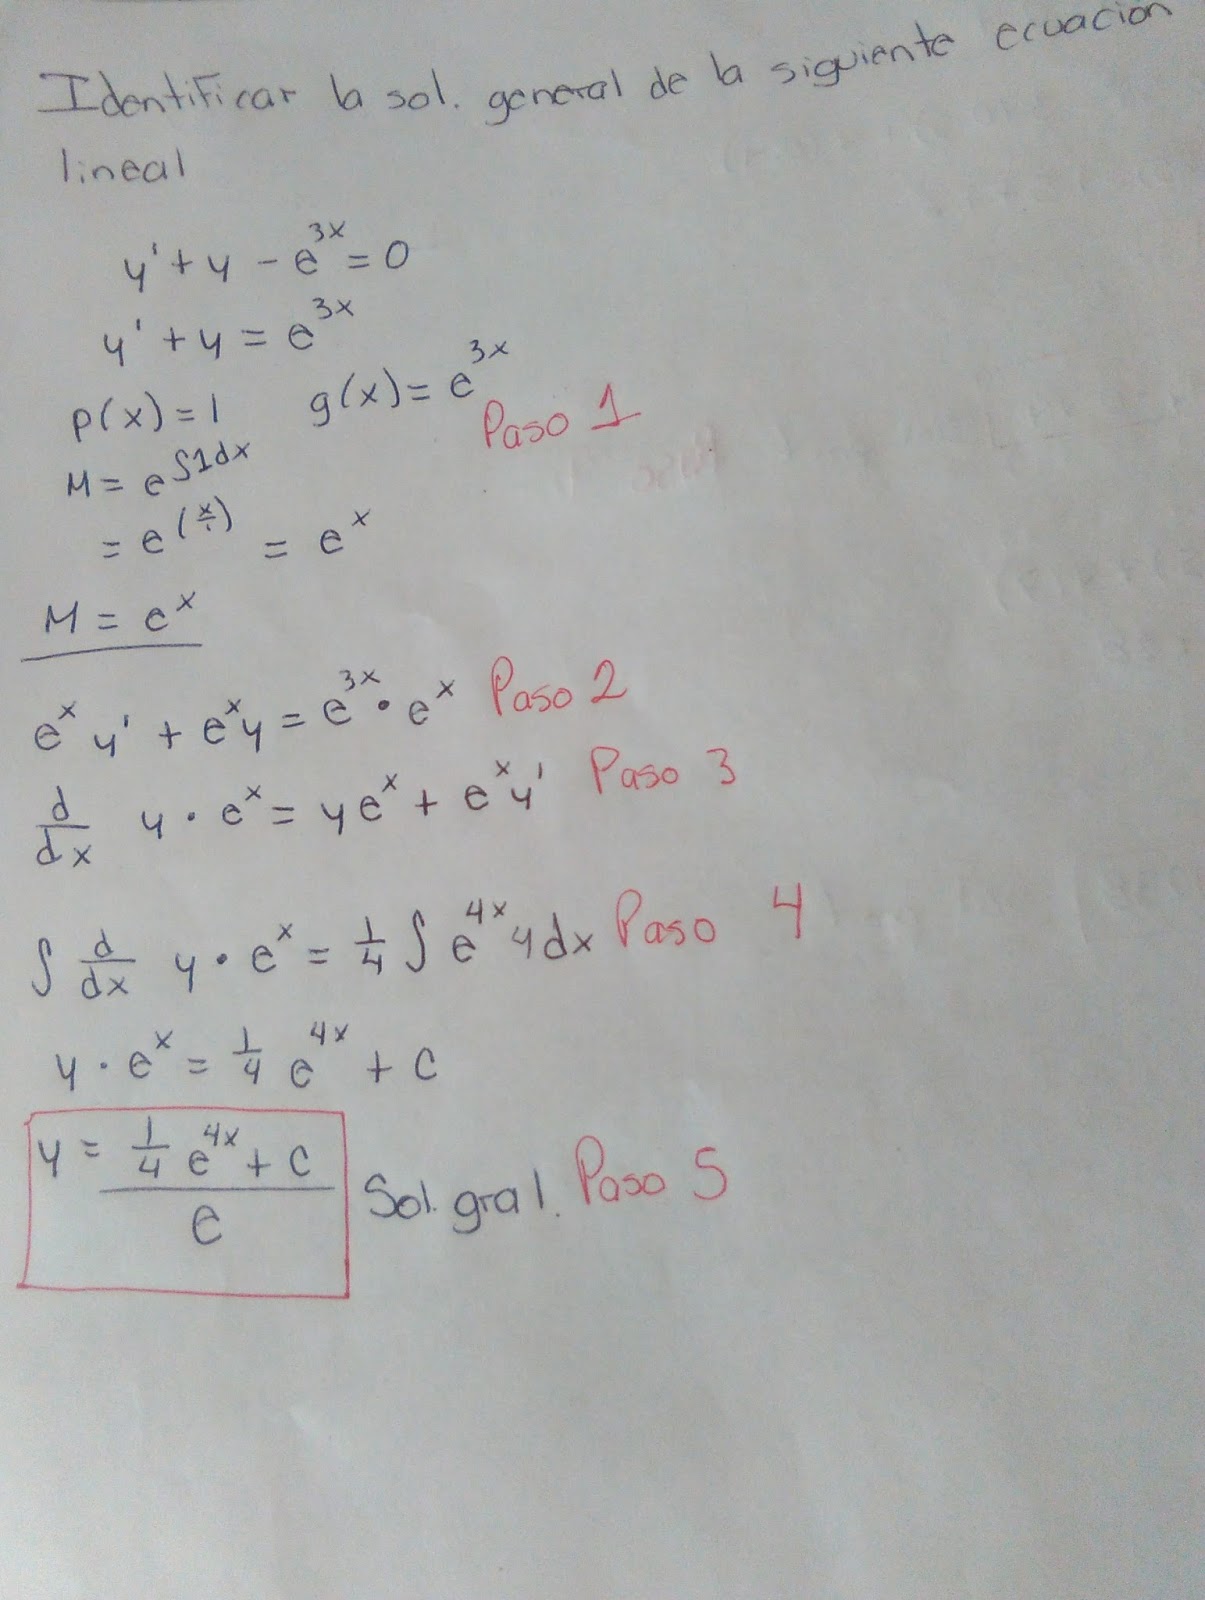 Identificar la sol. general de la siguiente ecuación
lineal
y' + y - e^3x = 0
y' + y = e^3x
p(x) = 1 g(x) = e^3x
Paso 1
M = e^∫1dx
= e^(x/1) = e^x
M = e^x
e^x y' + e^x y = e^3x · e^x Paso 2
d/dx y · e^x = y e^x + e^x y' Paso 3
∫ d/dx y · e^x = 1/4 ∫ e^4x 4dx Paso 4
y · e^x = 1/4 e^4x + c
y = (1/4 e^4x + c)/e Sol. gral. Paso 5